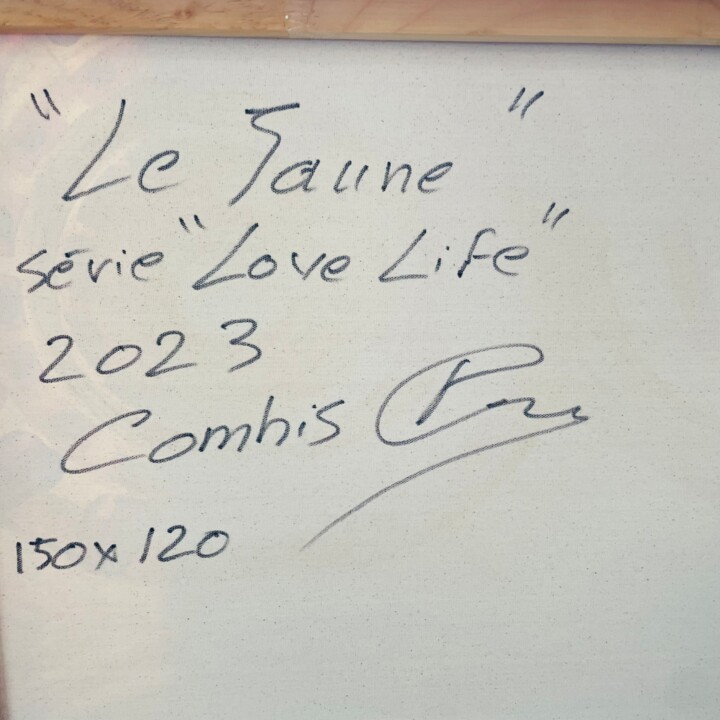 "Le Jaune"
série "Love Life"
2023
Combis
150x120